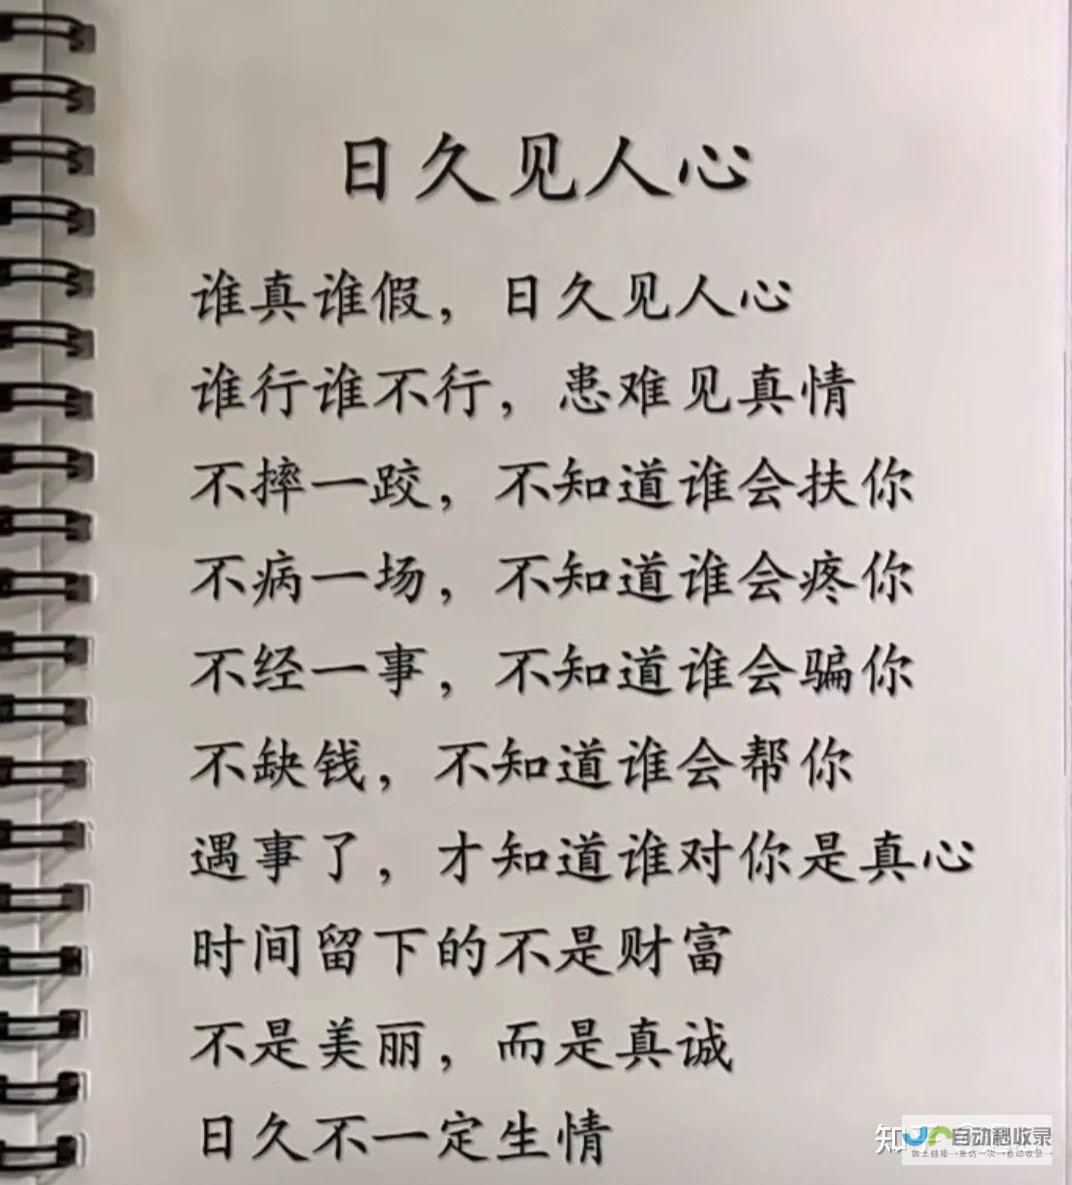 日久见人心
谁真谁假，日久见人心
谁行谁不行，患难见真情
不摔一跤，不知道谁会扶你
不病一场，不知道谁会疼你
不经一事，不知道谁会骗你
不缺钱，不知道谁会帮你
遇事了，才知道谁对你是真心
时间留下的不是财富
不是美丽，而是真诚
日久不一定生情
知
自动秒收录
做上链接→来访一次→自动收录